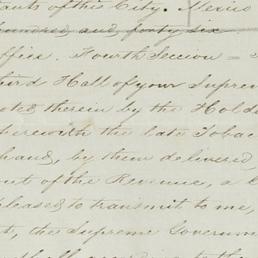 tants of this City. Mexico
hundred and forty six
office. Fourth Section =
hird Hall of your Suprem
oted therein by the Hold
herewith the late Tobac
hand, by them delivered,
out of the Revenue, a
pleased to transmit to me,
t, the Supreme Governm